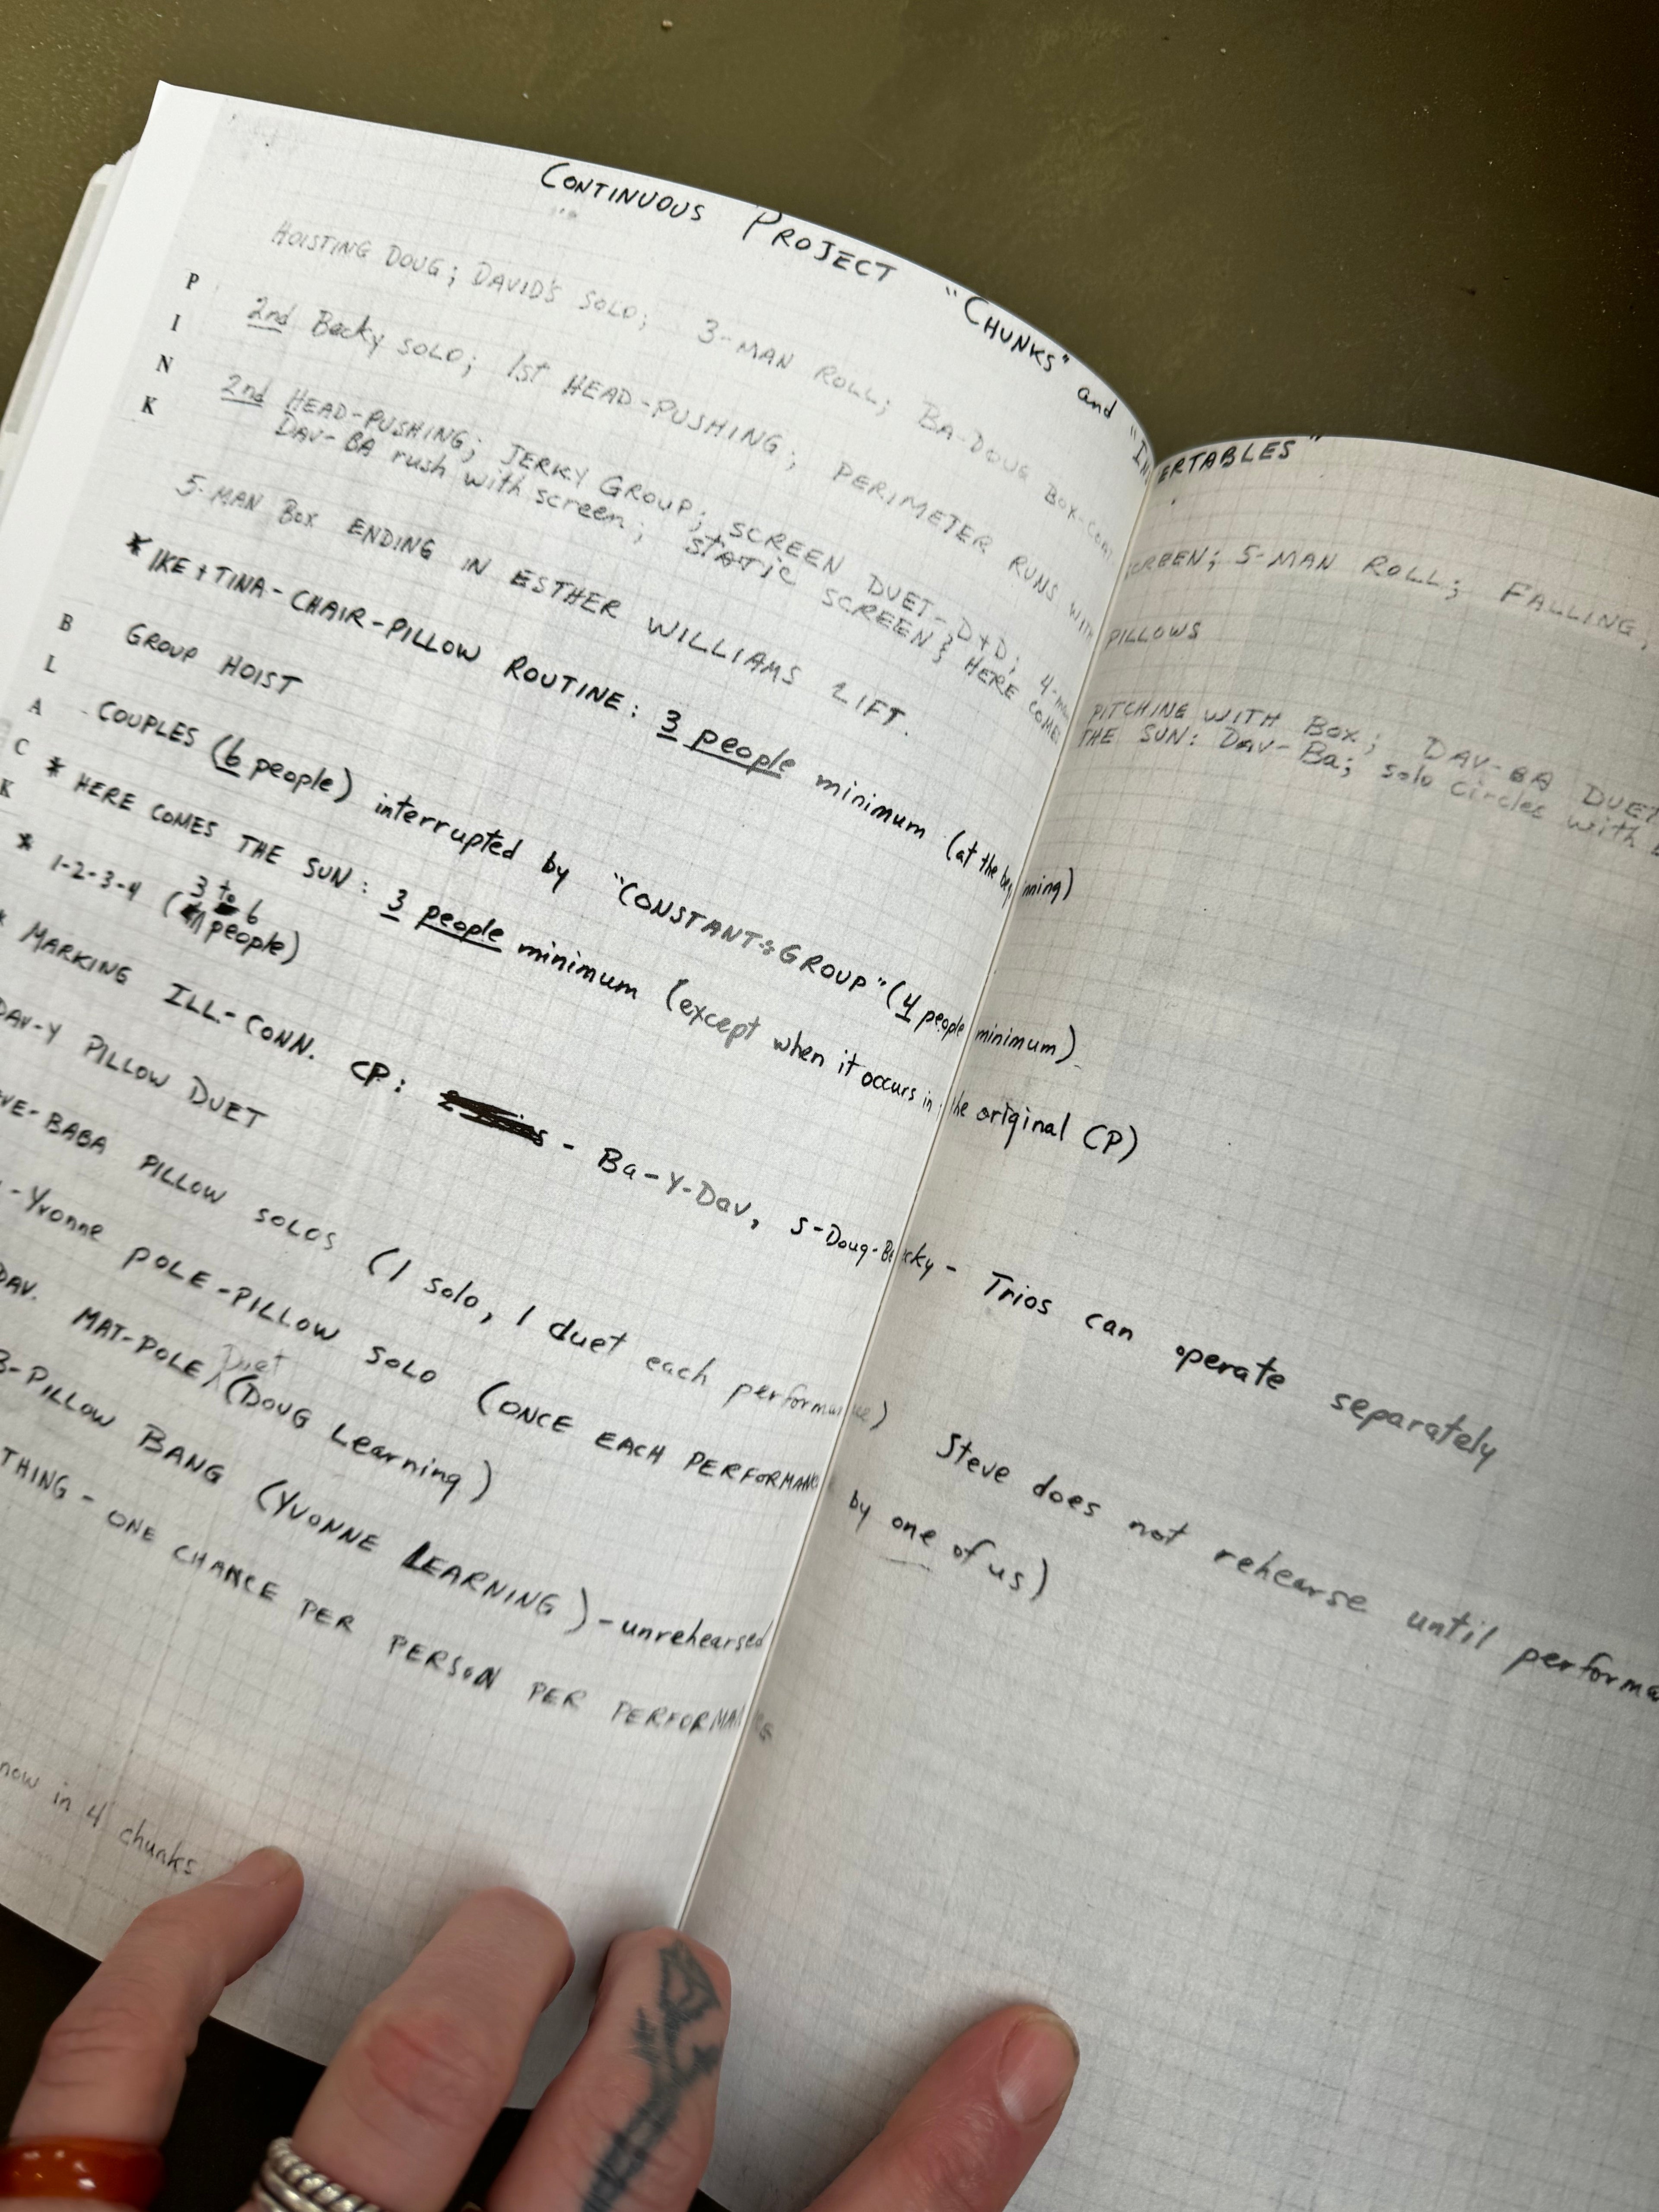 CONTINUOUS PROJECT "CHUNKS" and "INSERTABLES"
HOISTING DOUG; DAVID'S SOLO; 3-MAN ROLL; BA-DOUG BOX-COAT SCREEN; 5-MAN ROLL; FALLING;
2nd Becky SOLO; 1st HEAD-PUSHING; PERIMETER RUNS WITH PILLOWS
2nd HEAD-PUSHING; JERKY GROUP; SCREEN DUET-D+D; 4-man PITCHING WITH BOX; DAV-BA DUET
DAV-BA rush with screen; STATIC SCREEN; HERE COMES THE SUN: DAV-Ba; solo circles with
5-MAN BOX ENDING IN ESTHER WILLIAMS LIFT.
* IKE + TINA-CHAIR-PILLOW ROUTINE: 3 people minimum (at the beginning)
GROUP HOIST
COUPLES (6 people) interrupted by "CONSTANT GROUP" (4 people minimum)
* HERE COMES THE SUN: 3 people minimum (except when it occurs in the original CP)
* 1-2-3-4 (3 to 6 people)
* MARKING ILL-CONN. CP: - Ba-Y-Dav, S-Doug-Becky - Trios can operate separately
DAV-Y PILLOW DUET
VE-BABA PILLOW SOLOS (1 solo, 1 duet each performance) Steve does not rehearse until performa
-Yvonne POLE-PILLOW SOLO (ONCE EACH PERFORMANCE by one of us)
DAV. MAT-POLE Duet (DOUG Learning)
B-PILLOW BANG (YVONNE LEARNING) - unrehearsed
THING - ONE CHANCE PER PERSON PER PERFORMANCE
now in 4 chunks
P
I
N
K
B
L
A
C
K